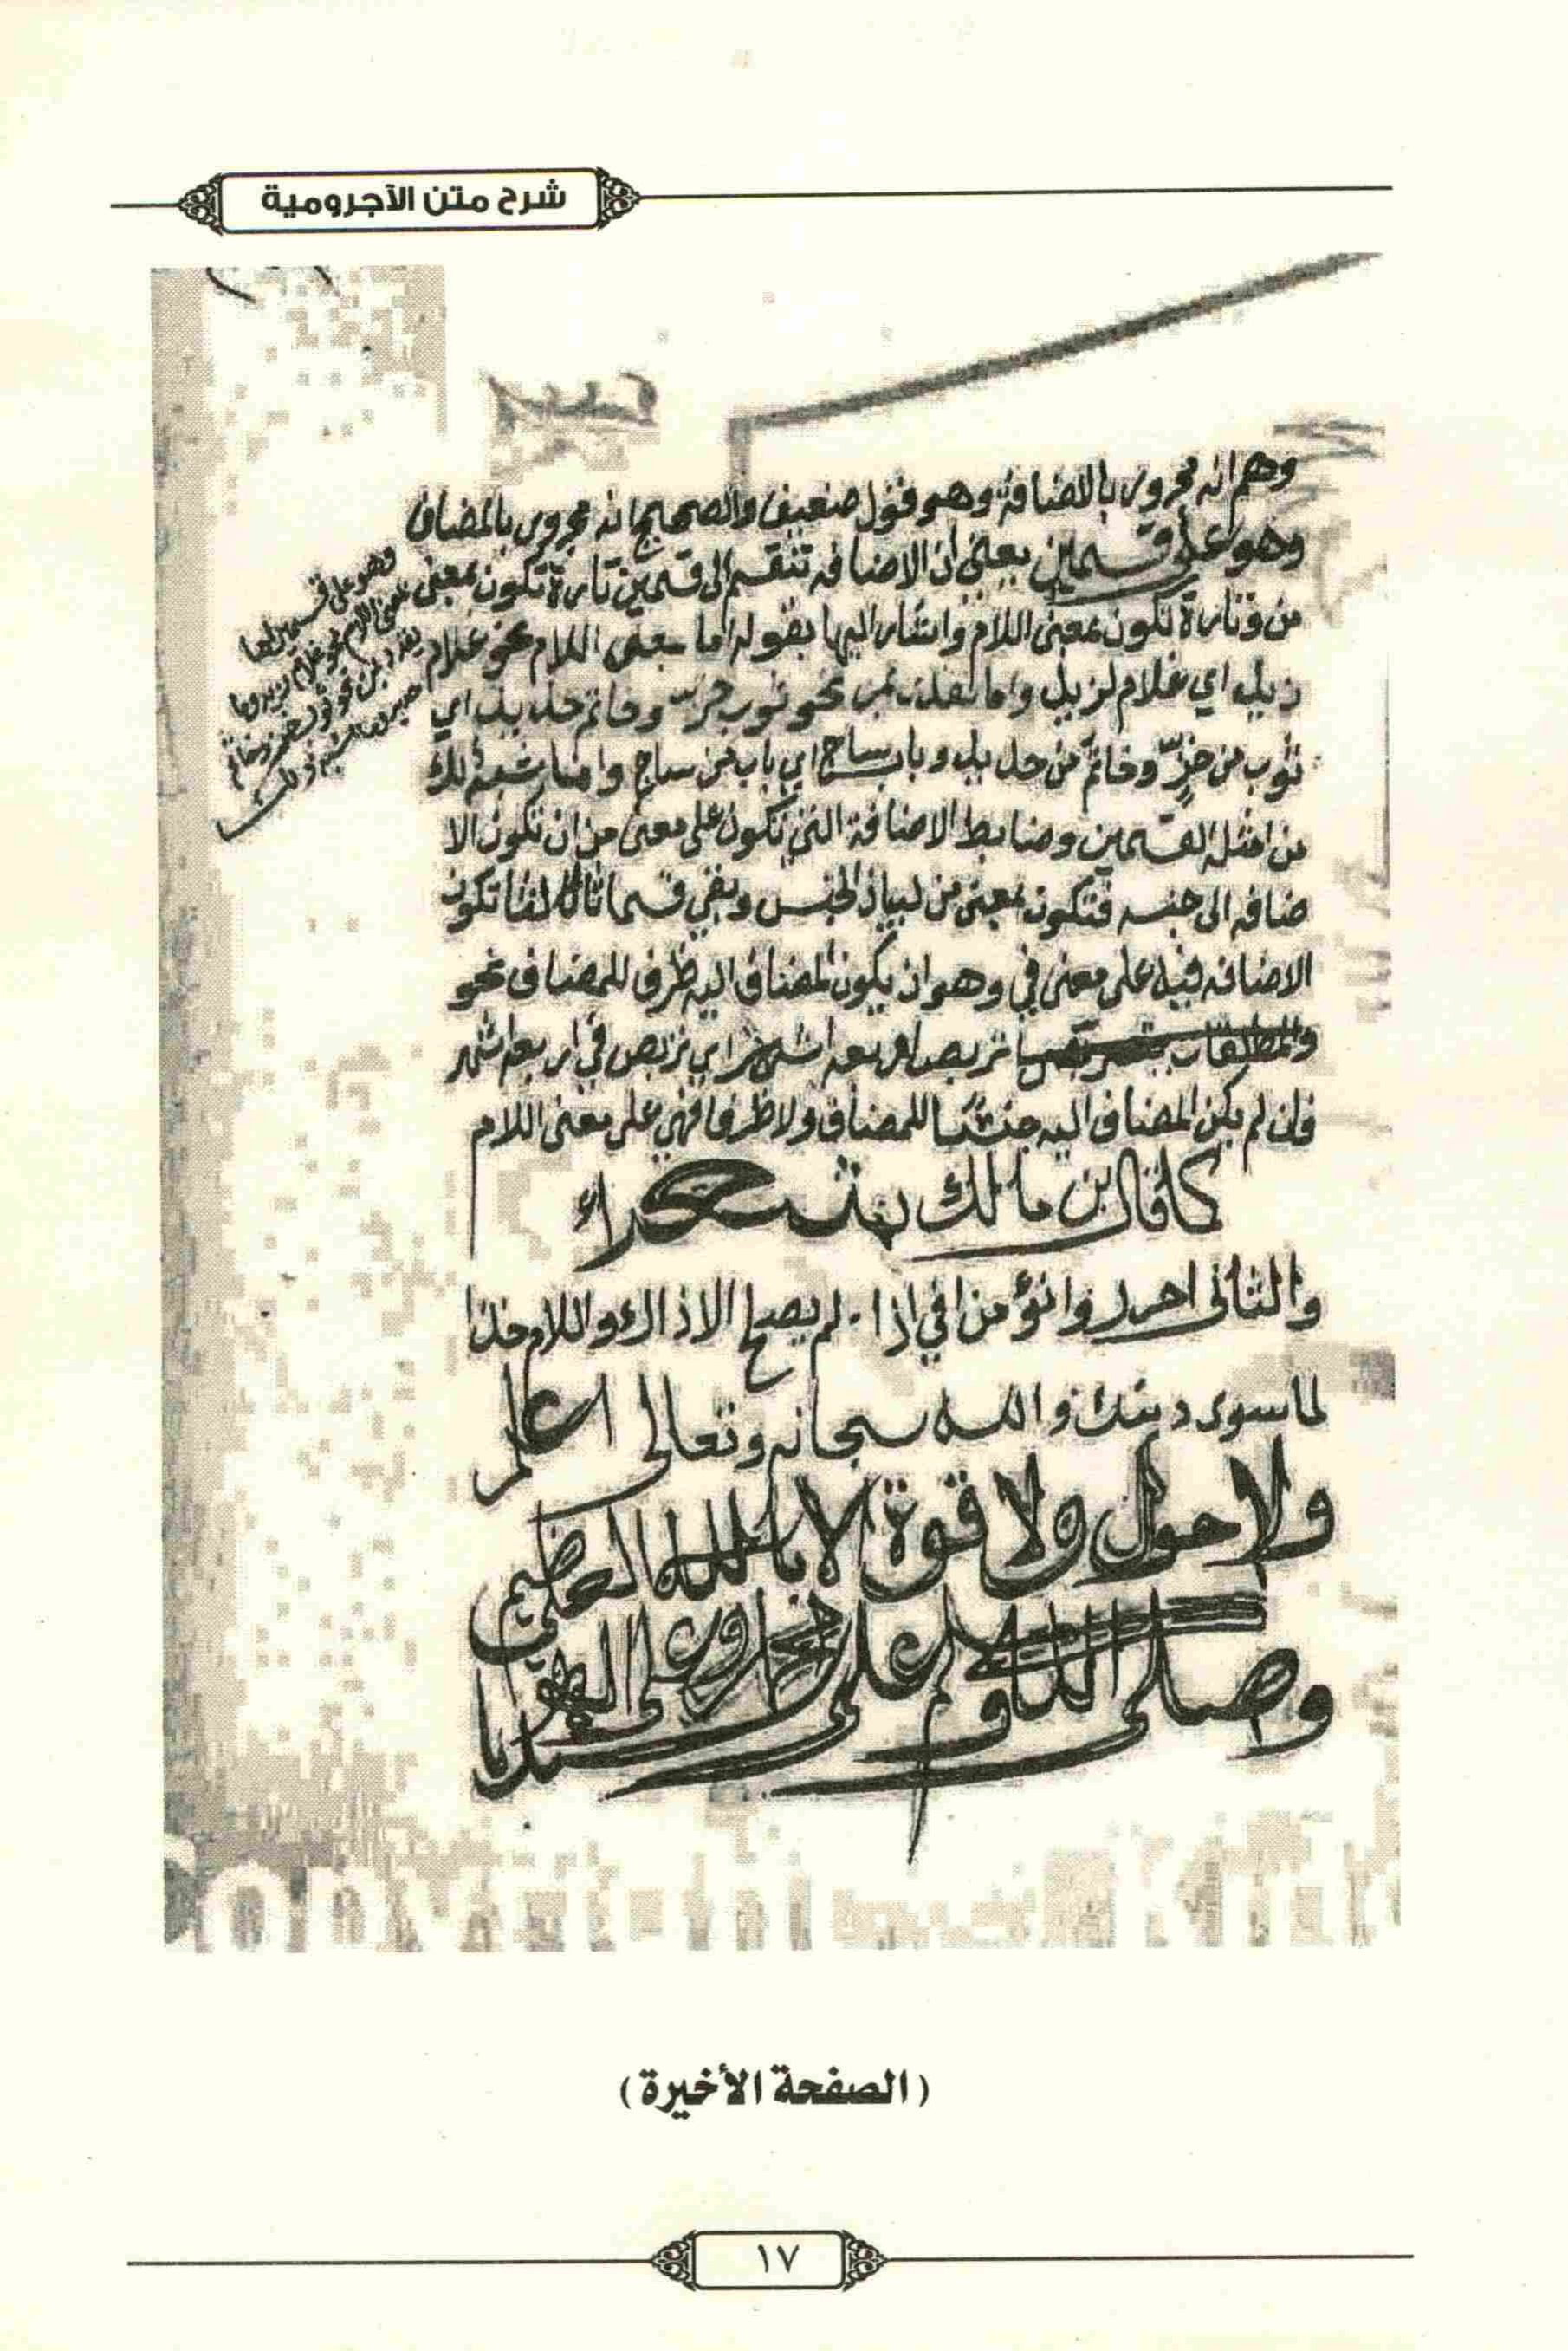 شرح متن الآجرومية
وهم انه مجرور بالاضافة وهو قول ضعيف والصحيح انه مجرور بالمضاف
وهو على قسمين يعني ان الاضافه تنقسم الى قسمين تارة تكون بمعنى
من وتارة تكون بمعنى اللام واشار اليها بقوله اما بمعنى اللام نحو غلام
زيد اي غلام لزيد وما نحو ثوب خزّ وخاتم حديد اي
ثوب من خزّ وخاتم من حديد وباب ساج اي باب من ساج وما اشبه ذلك
من امثله القسمين وضابط الاضافة التي تكون على معنى من ان تكون الا
ضافه الى جنسه فتكون بمعنى من لبيان الجنس وبقي قسما ثالثا تكون
الاضافه فيه على معنى في وهو ان يكون المضاف اليه ظرف للمضاف نحو
تربص اربعه اشهر اي تربص في اربعه اشهر
فان لم يكن المضاف اليه جنسا للمضاف ولا ظرفا فهي على معنى اللام
كما قال بن مالك
والثاني اجرر وانو من او في اذا لم يصلح الا ذاك واللام خذا
لما سوى دينك والله سبحانه وتعالى اعلم
ولا حول ولا قوة الا بالله العلي العظيم
وصلى الله وسلم على سيدنا محمد وعلى اله
وهو على قسمين
بمعنى اللام نحو غلام زيد وما
يقدر بمن نحو ثوب خز وخاتم
(الصفحة الأخيرة)
١٧